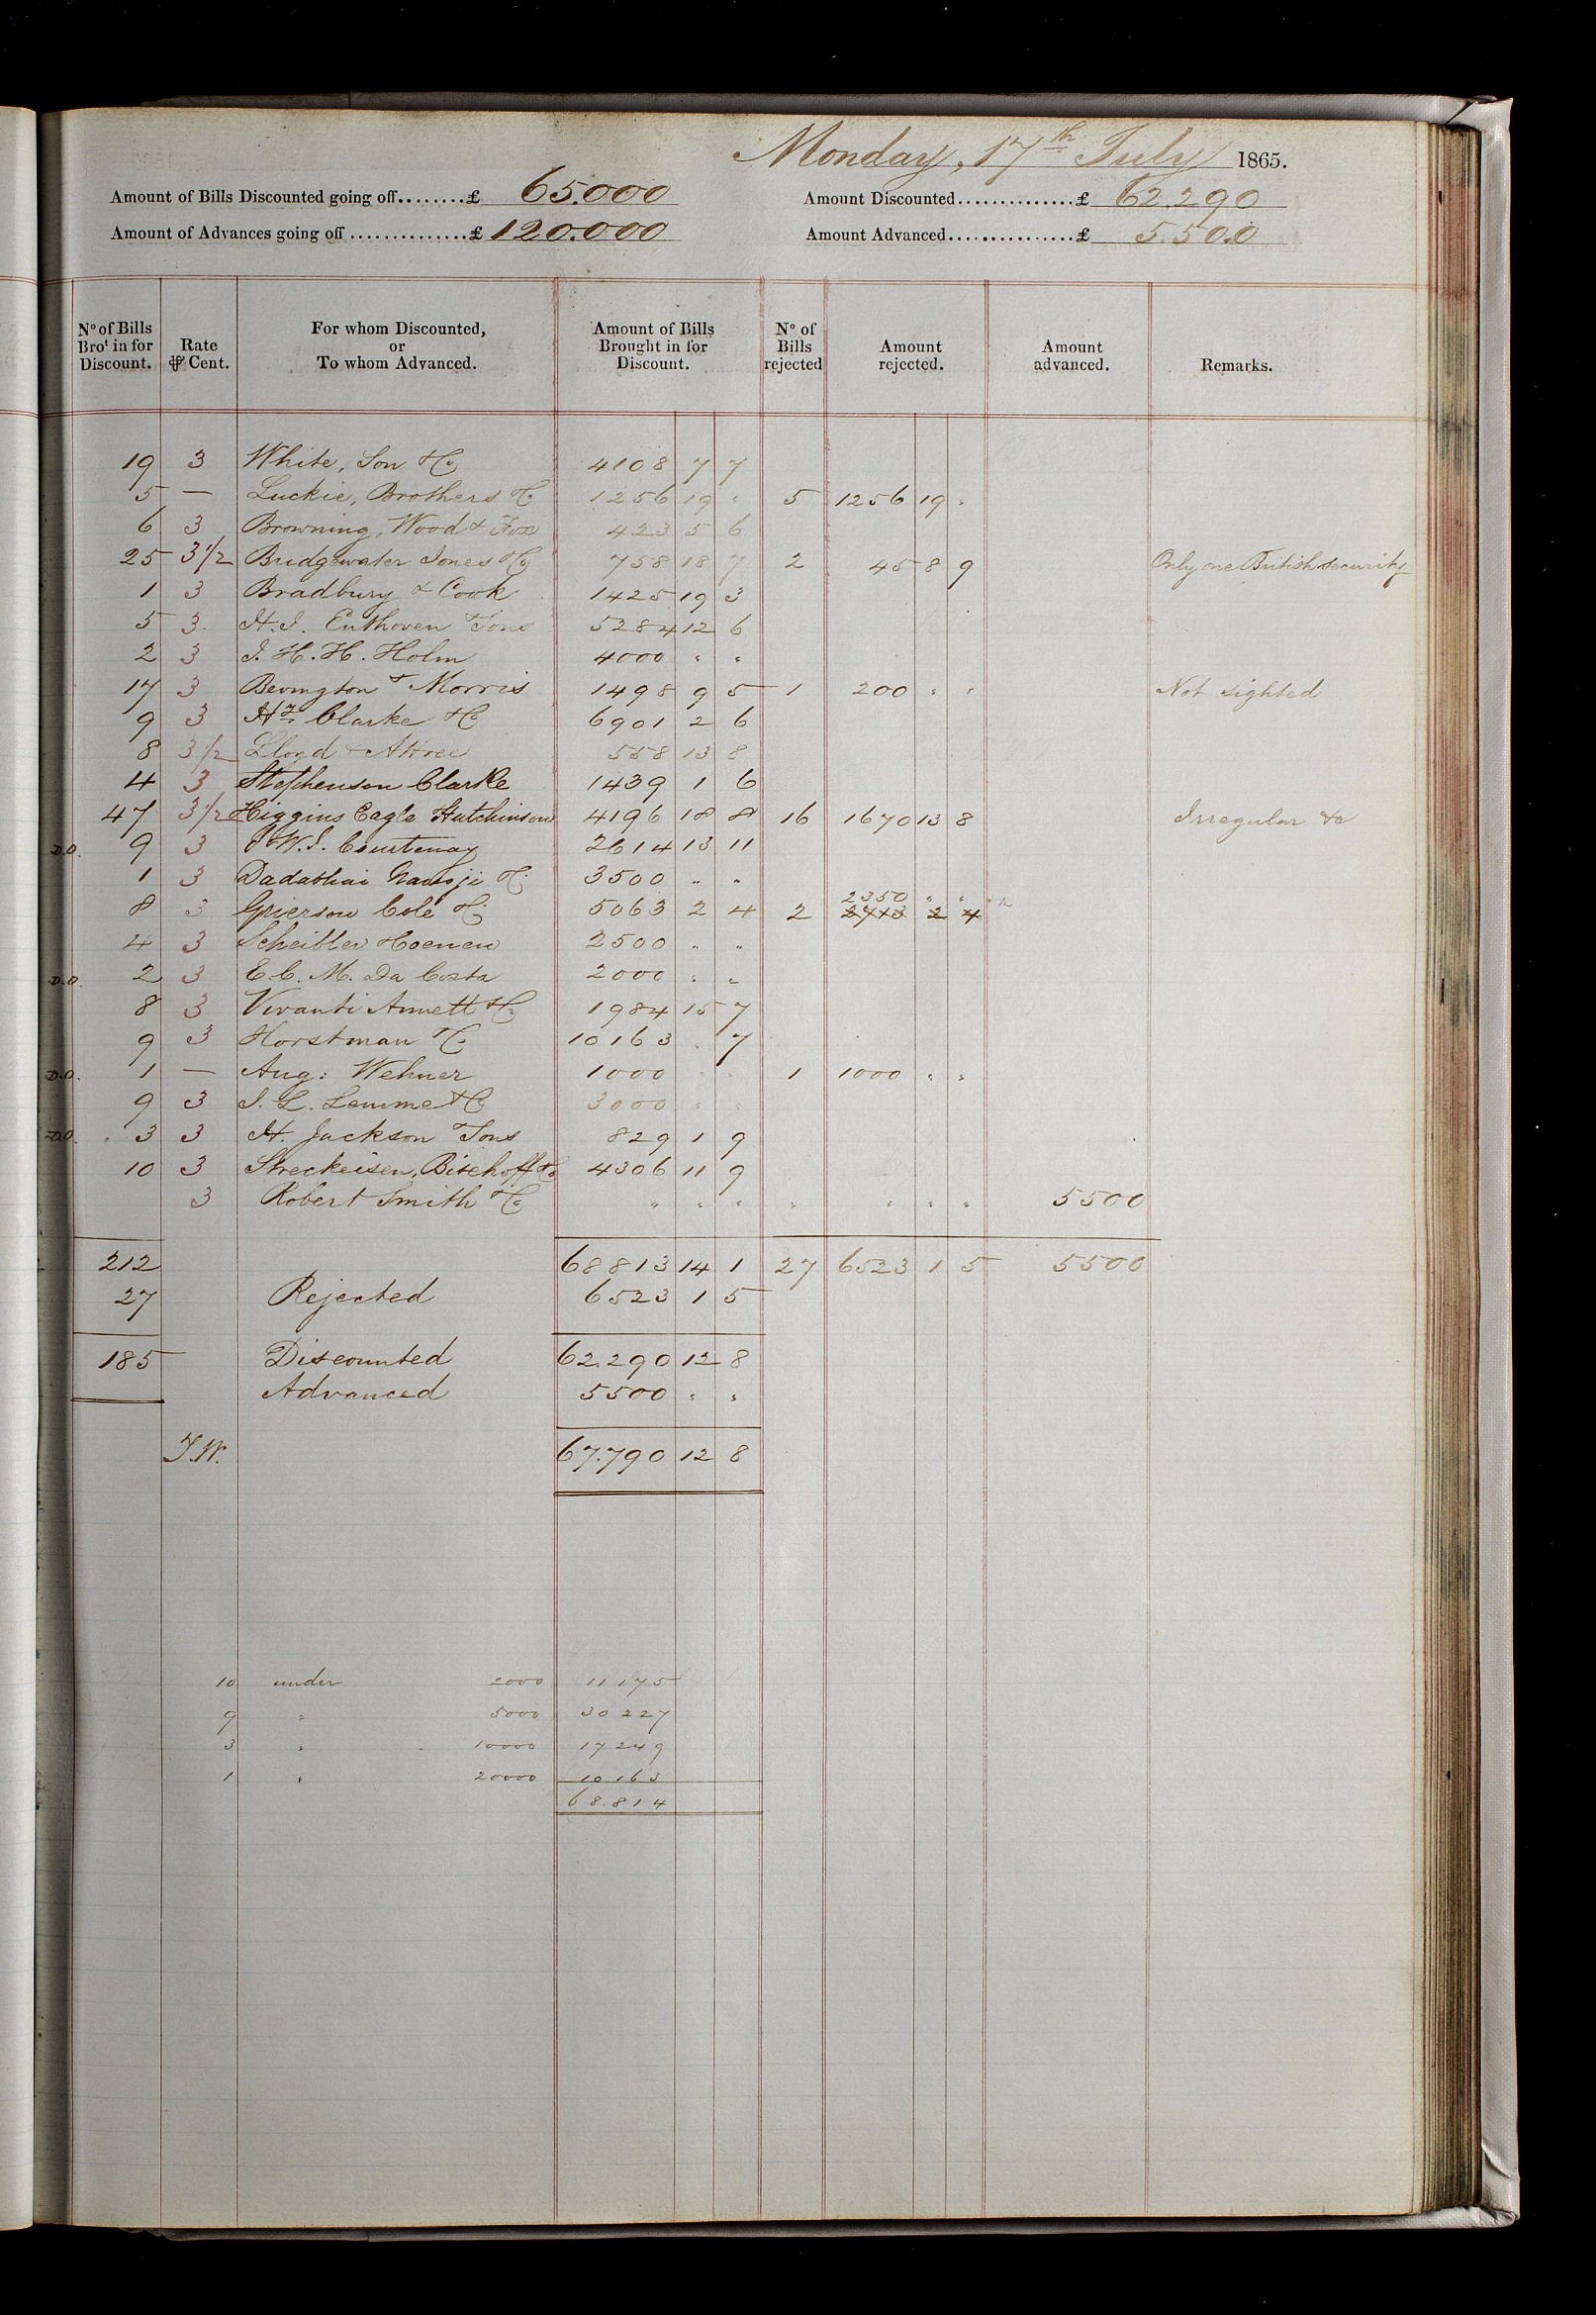 Monday, 17th July 1865.
Amount of Bills Discounted going off........£ 65.000 Amount Discounted..............£ 62.290
Amount of Advances going off..............£ 120.000 Amount Advanced...............£ 5.500
No of Bills Brot in for Discount. Rate ⅌ Cent. For whom Discounted, or To whom Advanced. Amount of Bills Brought in for Discount. No of Bills rejected Amount rejected. Amount advanced. Remarks.
19 3 White, Son & Co 4108 7 7
5 — Luckie, Brothers & Co 1256 19 " 5 1256 19 "
6 3 Browning, Wood & Fox 423 5 6
25 3 1/2 Bridgewater Jones & Co 758 18 7 2 45 8 9 Only one British security
1 3 Bradbury & Cook 1425 19 3
5 3 H.J. Enthoven & Sons 5284 12 6
2 3 J. H. H. Holm 4000 " "
17 3 Bevington & Morris 1498 9 5 1 200 " " Not sighted
9 3 Hy Clarke & Co 6901 2 6
8 3 1/2 Lloyd & Attree 558 13 8
4 3 Stephenson Clarke 1439 1 6
47 3 1/2 Higgins Eagle Hutchinson 4196 18 8 16 1670 13 8 Irregular &c
D.O. 9 3 W.J. Courtenay 2614 13 11
1 3 Dadabhai Naoroji & Co 3500 " "
2350 " "
8 3 Grierson Cole & Co 5063 2 4 2 2713 2 4
4 3 Scheibler & Coenen 2500 " "
D.O. 2 3 E.C. M. Da Costa 2000 " "
8 3 Vivanti Annett & Co 1984 15 7
9 3 Horstman & Co 10163 " 7
D.O. 1 — Aug: Wehner 1000 " " 1 1000 " "
9 3 J. L. Lemme & Co 3000 " "
D.O. 3 3 H. Jackson & Sons 829 1 9
10 3 Streckeisen, Bischoff & Co 4306 11 9
3 Robert Smith & Co " " " " " " " 5500
212 68813 14 1 27 6523 1 5 5500
27 Rejected 6523 1 5
185 Discounted 62.290 12 8
Advanced 5500 " "
67.790 12 8
10 under 2000 11175
9 " 5000 30227
3 " 10000 17249
1 " 20000 10163
68.814